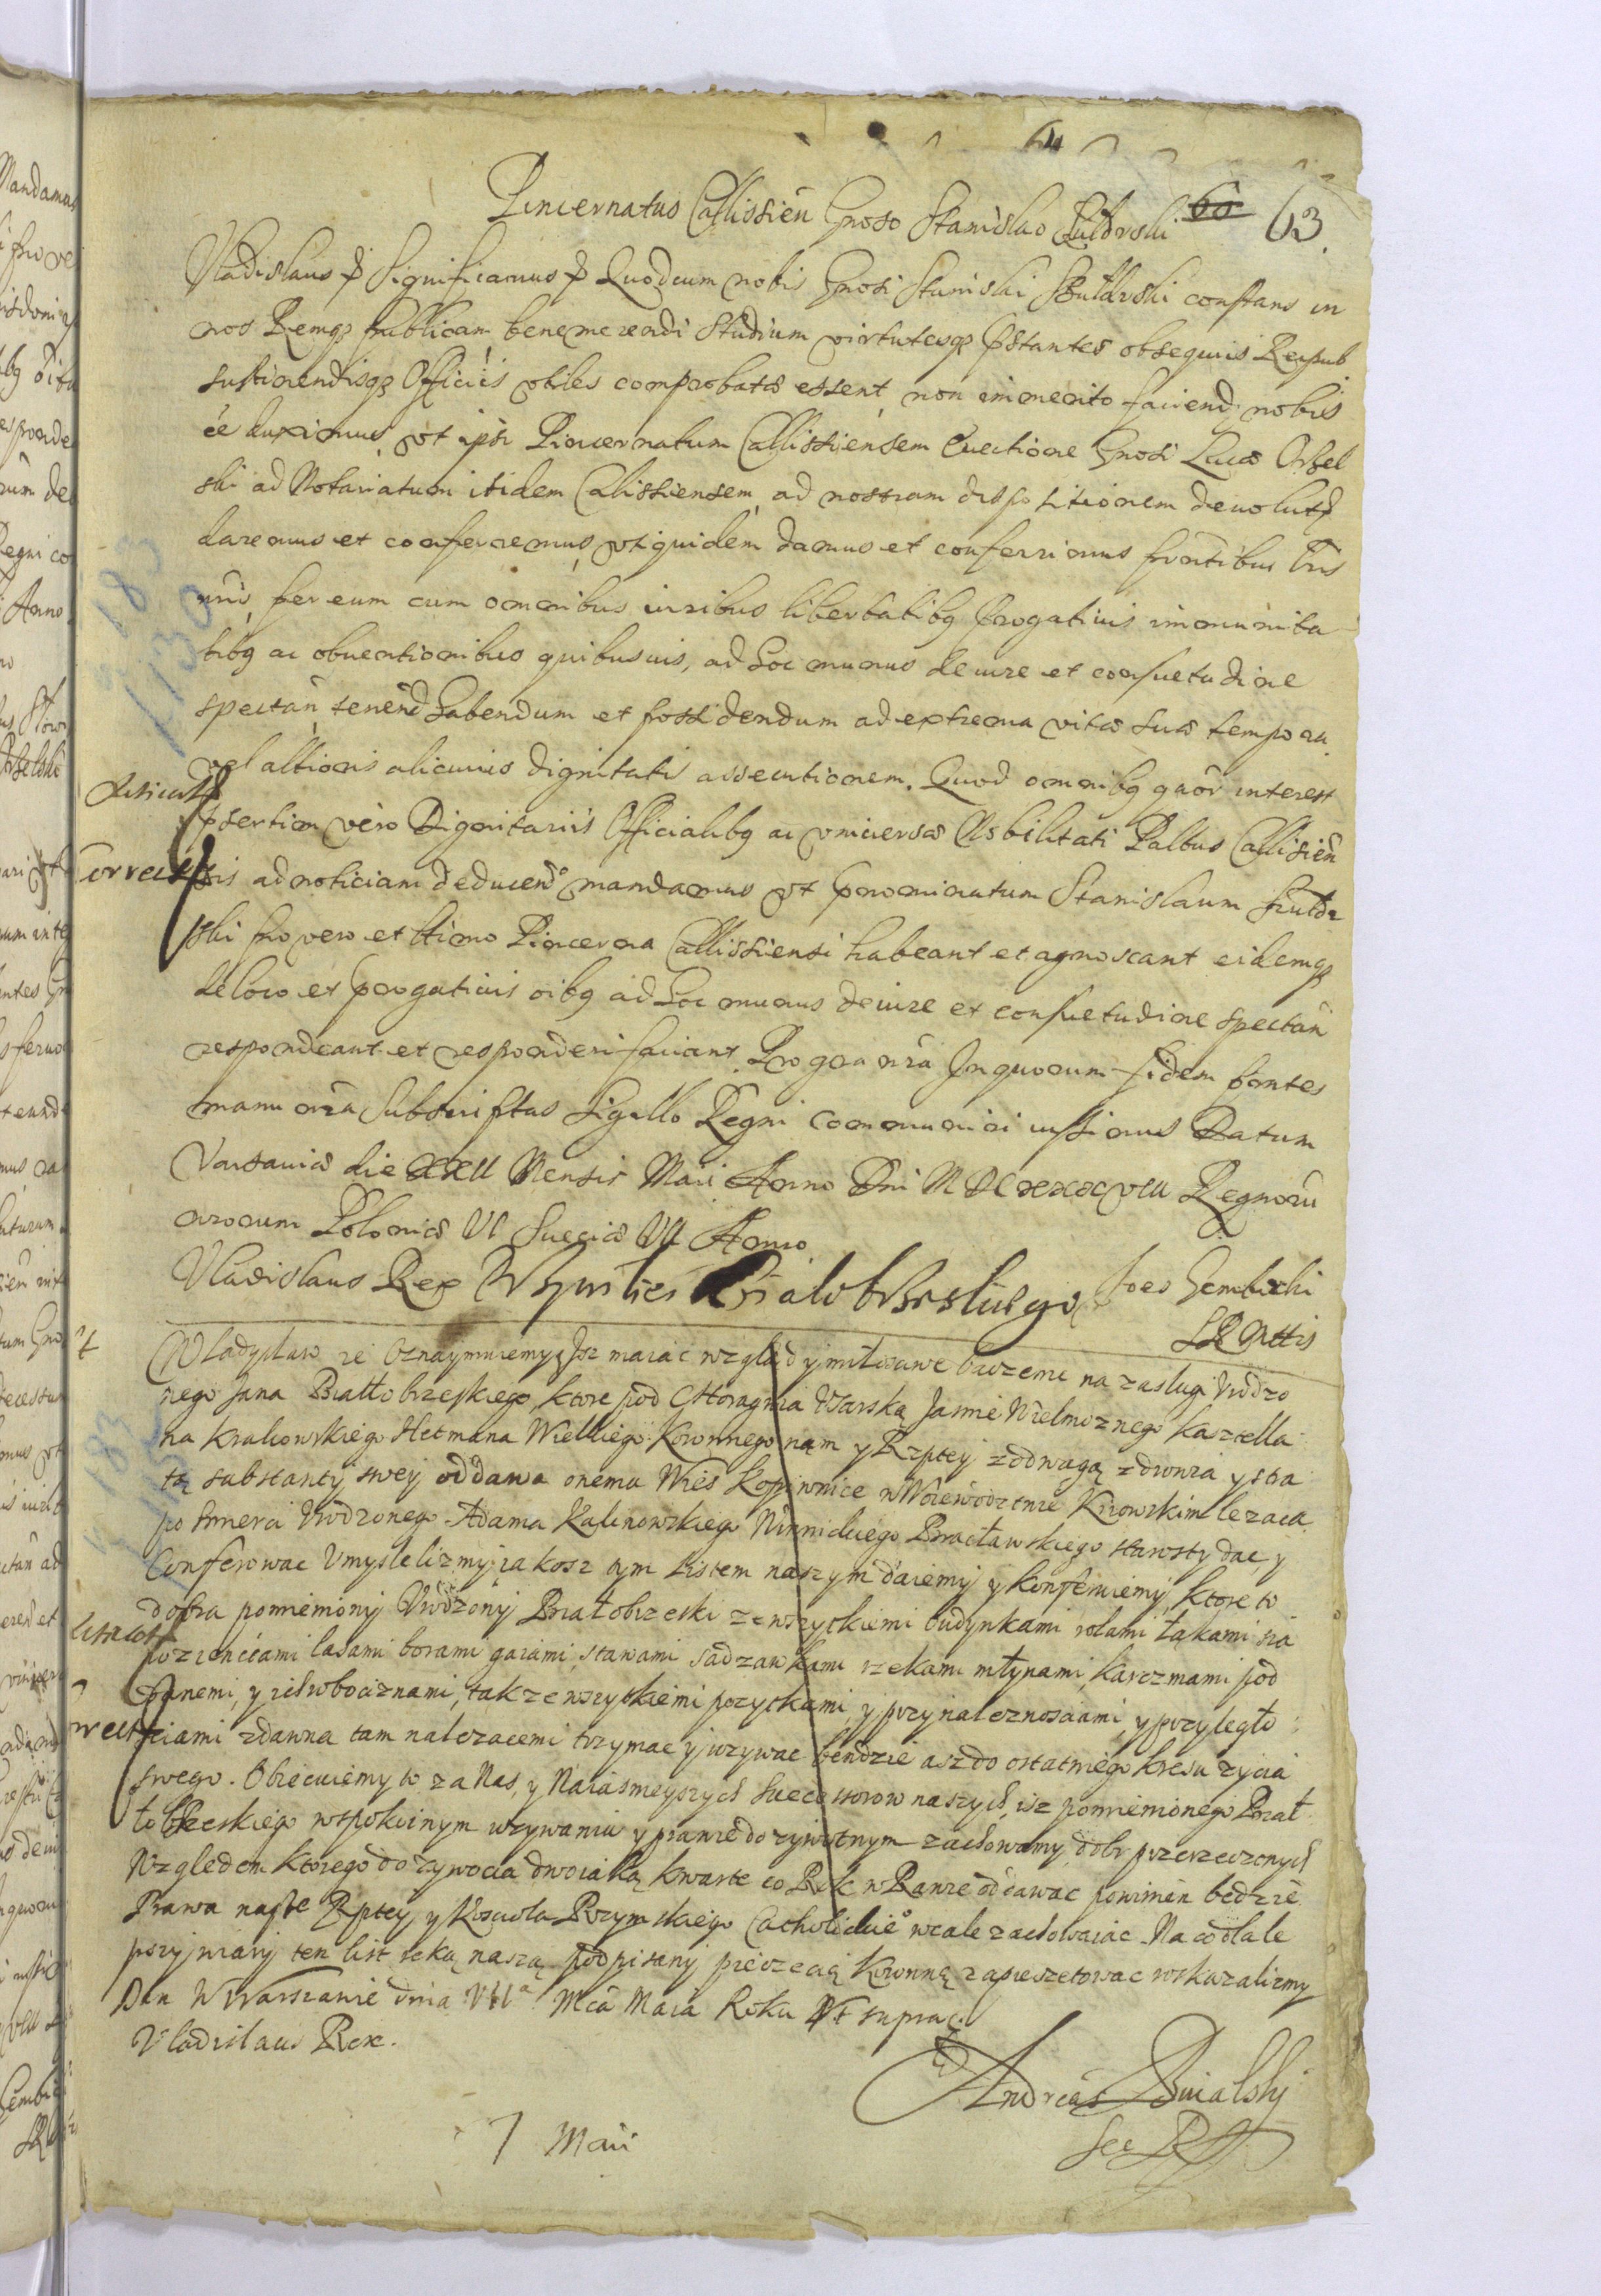 64
Pincernatus Callissien Gnoso Stanislao 60 63.
Vladislaus Significamus Quod cum nobis Gnosi Stanislai constans in
nos Remq publicam benemerendi studium virtutesq pstantes obsequiis Reipub
sustinendisq Officiis vtiles comprobatæ essent, non immerito faciend nobis
ee duximus, vt ipsi Pincernatum Callissiensem Euectione Gnosi Lucæ Orzel
ski ad Notariatum itidem Calissiensem, ad nostram dispositionem deuolut
daremus et conferremus, vt quidem damus et conferrimus pntibus lris
nris, per eum cum omnibus iuribus libertatibq progatiuis immunita
tibq ac obuentionibus quibusuis, ad hoc munus de iure et consuetudine
spectan, tenend habendum et possidendum ad extrema vitæ suæ tempora,
vel altioris alicuius dignitatis assecutionem. Quod omnibq quor interest
psertim vero Dignitariis Officialibq ac vniuersæ Nobilitati Paltus Callisien
correct
sis ad noticiam deducendo mandamus vt pnominatum Stanislaum
ski pro vero et ltimo Pincerna Callissiensi habeant et agnoscant eidemq
de loco et progatiuis oibq ad hoc munus de iure et consuetudine spectan
respondeant et responderi faciant. Pro gra nra In quorum fidem pntes
manu nra Subscriptas Sigillo Regni communiri iussimus Datum
Varsauiæ die XXII Mensis Maii Anno Dni M DC XXXVIII Regnorū
nrorum Poloniæ VI Sueciæ VII Anno
Vladislaus Rex Białobrzeskiego Joes Gembicki
Vladysław Oznaymuiemy, Isz maiac wzgląd y miłosciwe baczenie na zasługi Vrodzo
nego Jana Białłobrzeskiego, ktore pod Choragwia Vsarską Jasnie Wielmoznego Kasztella
na Krakowskiego Hetmana Wielkiego Koronnego nam y Rzptey z odwagą zdrowia y stra
tą substantij swey oddawa onemu Wies Kopiwnice w Woiewodztwie Kiiowskim lezaca
po smierci Vrodzonego Adama Kalinowskiego Winnickiego Bracławskiego starosty dac y
Conferowac Vmyslelizmy, iakosz tym listem naszym daiemy y konferuiemy, ktore to
dobra pomieniony Vrodzony Białobrzeski ze wszytkiemi budynkami rolami łakami sia
nozenciami lasami borami gaiami, stawami sadzawkami rzekami młynami, karczmami pod
danemi, y ich robociznami, tak ze wszytkiemi pozytkami, y przynaleznosciami, y przyległo
sciami zdawna tam nalezacemi trzymac y uzywac bendzie asz do ostatniego kresu zycia
swego. Obiecuiemy to za Nas, y Naiasnieyszych Successorow naszych, isz pomienionego Biał
łobrzeskiego w spokoinym uzywaniu y prawie dozywotnym zachowamy, dobr przerzeczonych
Wzgledem ktorego dozywocia dwoiaką kwarte co Rok w Rawie oddawac powinien bedzie
Prawa nasze Rptey, y Kosciola Rzymskiego Catholickieo wcale zachowaiac. Na co dla le
pszy wiary ten list reką naszą podpisany pieczecią Koronną zapieczetowac roskazalizmy
Dan w Warszawie dnia VIIa Mca Maia Roku Vt supra.
Vladislaus Rex.
Andreas
7 Maii